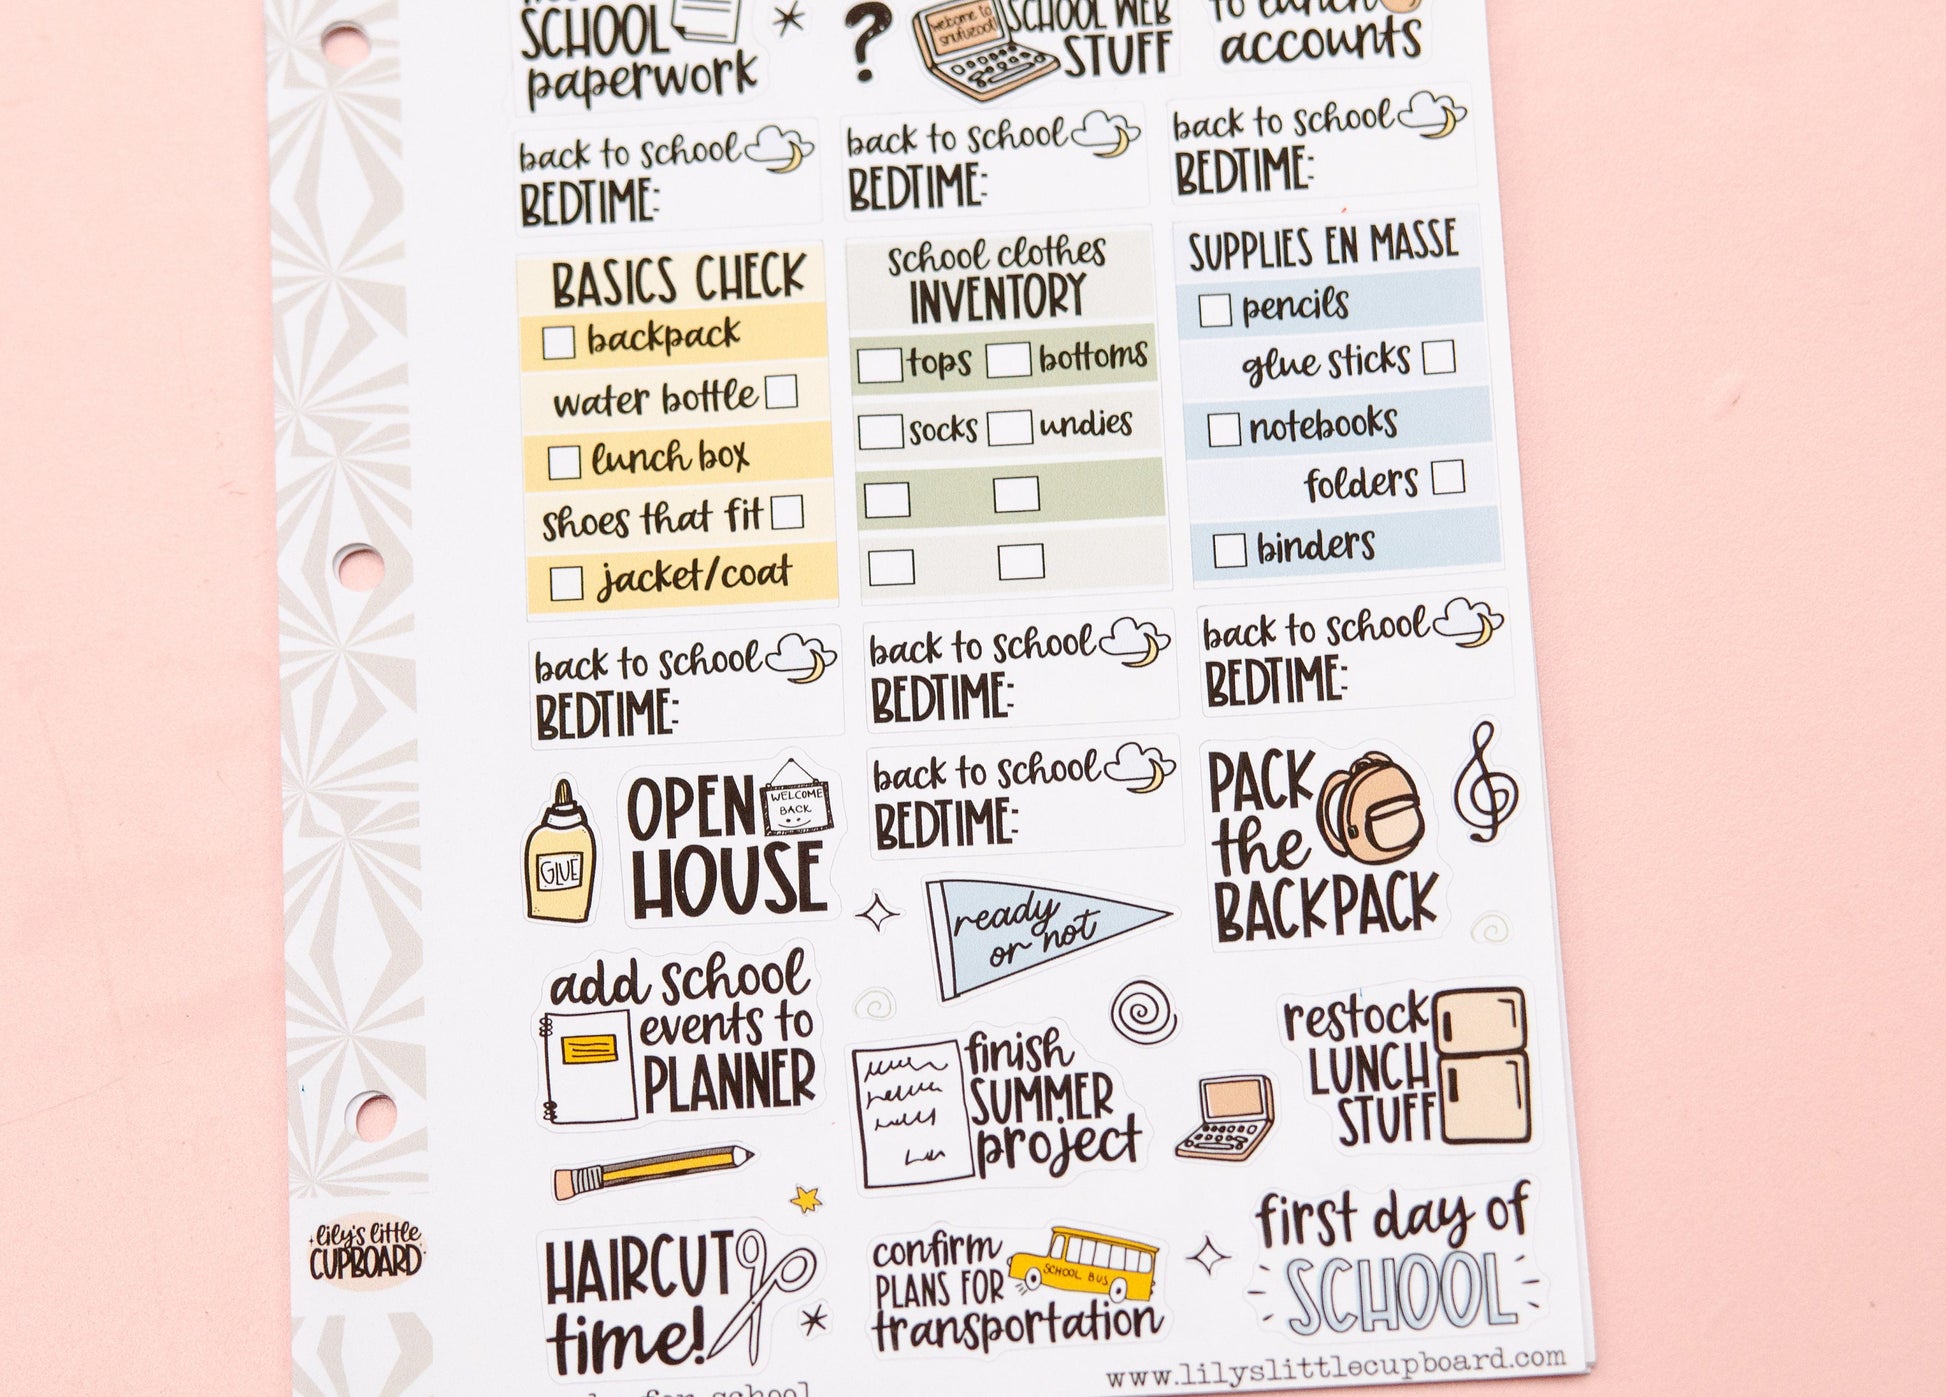 SCHOOL
paperwork
?
welcome to
SCHOOL WEB
STUFF
to lunch
accounts
back to school
BEDTIME:
back to school
BEDTIME:
back to school
BEDTIME:
BASICS CHECK
backpack
water bottle
lunch box
shoes that fit
jacket/coat
school clothes
INVENTORY
tops bottoms
socks undies
SUPPLIES EN MASSE
pencils
glue sticks
notebooks
folders
binders
back to school
BEDTIME:
back to school
BEDTIME:
back to school
BEDTIME:
GLUE
OPEN
HOUSE
WELCOME
BACK
back to school
BEDTIME:
PACK
the
BACKPACK
ready
or not
add school
events to
PLANNER
finish
SUMMER
project
restock
LUNCH
STUFF
HAIRCUT
time!
confirm
PLANS FOR
transportation
SCHOOL BUS
first day of
SCHOOL
lily's little
CUPBOARD
www.lilyslittlecupboard.com
for school